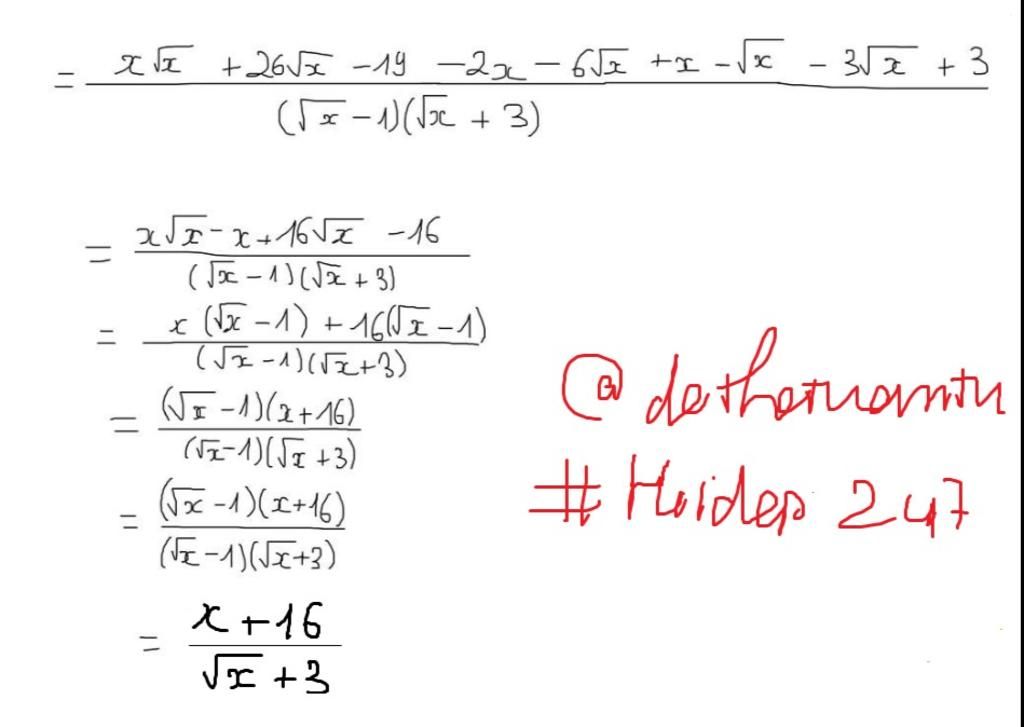 = (x√x + 26√x - 19 - 2x - 6√x + x - √x - 3√x + 3) / ((√x - 1)(√x + 3))
= (x√x - x + 16√x - 16) / ((√x - 1)(√x + 3))
= (x(√x - 1) + 16(√x - 1)) / ((√x - 1)(√x + 3))
= ((√x - 1)(x + 16)) / ((√x - 1)(√x + 3))
= ((√x - 1)(x + 16)) / ((√x - 1)(√x + 3))
= (x + 16) / (√x + 3)
# Hoidap 247